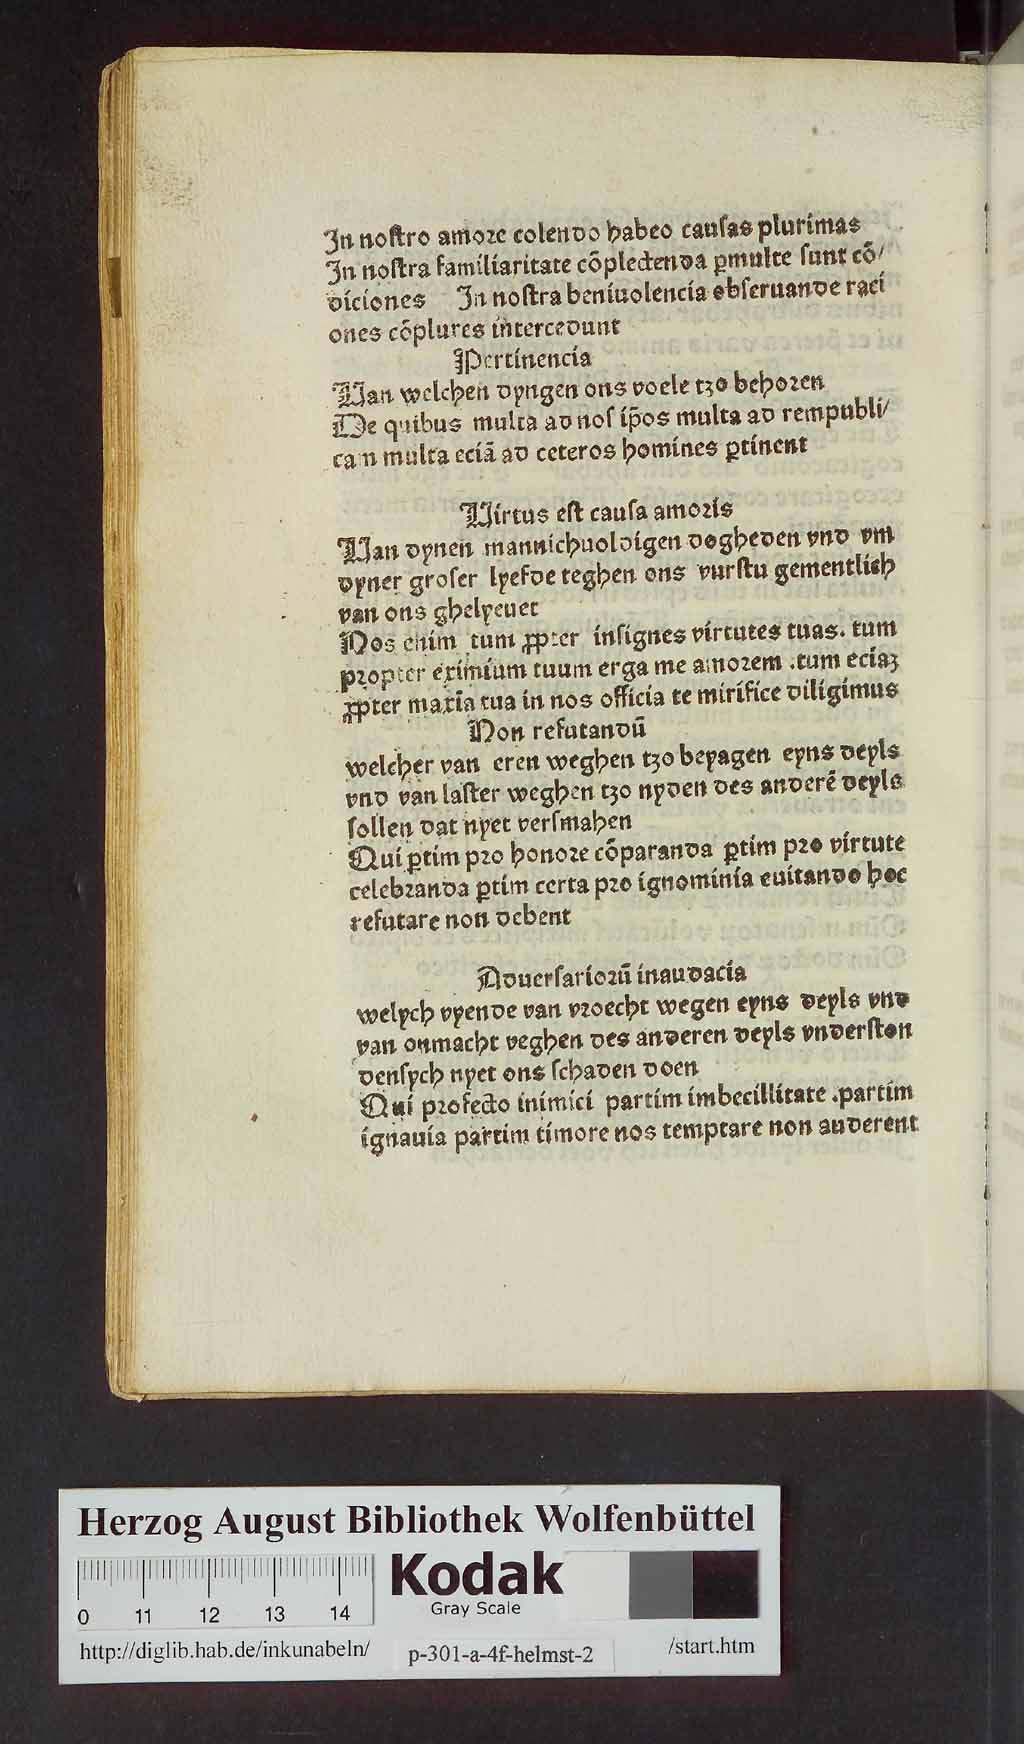 In noſtro amore colendo habeo cauſas plurimas
In noſtra familiaritate cõplectenda ꝑmulte ſunt cõ/
diciones In noſtra beniuolencia obſeruande raci
ones cõplures intercedunt
Pertinencia
Van welchen dyngen ons voele tzo behoren
De quibus multa ad noſ ip̃os multa ad rempubli/
cam multa eciã ad ceteros homines ꝑtinent
Virtus eſt cauſa amoris
Van dynen mannichuoldigen dogheden vnd vm
dyner groſer lyefde teghen ons vurſtu gementlich
van ons ghelyeuet
Nos enim tum ꝓpter inſignes virtutes tuas. tum
propter eximium tuum erga me amorem .tum eciaꝫ
ꝓpter maxĩa tua in nos officia te mirifice diligimus
Non refutandũ
welcher van eren weghen tzo beyagen eyns deyls
vnd van laſter weghen tzo nyden des anderẽ deyls
ſollen dat nyet verſmahen
Qui ꝑtim pro honore cõparanda ꝑtim pro virtute
celebranda ꝑtim certa pro ignominia euitando hoc
refutare non debent
Aduerſariorũ inaudacia
welych vyende van vroecht wegen eyns deyls vnd
van onmacht veghen des anderen deyls vnderſton
denſych nyet ons ſchaden doen
Qui profecto inimici partim imbecillitate .partim
ignauia partim timore nos temptare non auderent
Herzog August Bibliothek Wolfenbüttel
Kodak
Gray Scale
0 11 12 13 14
http://diglib.hab.de/inkunabeln/ p-301-a-4f-helmst-2 /start.htm